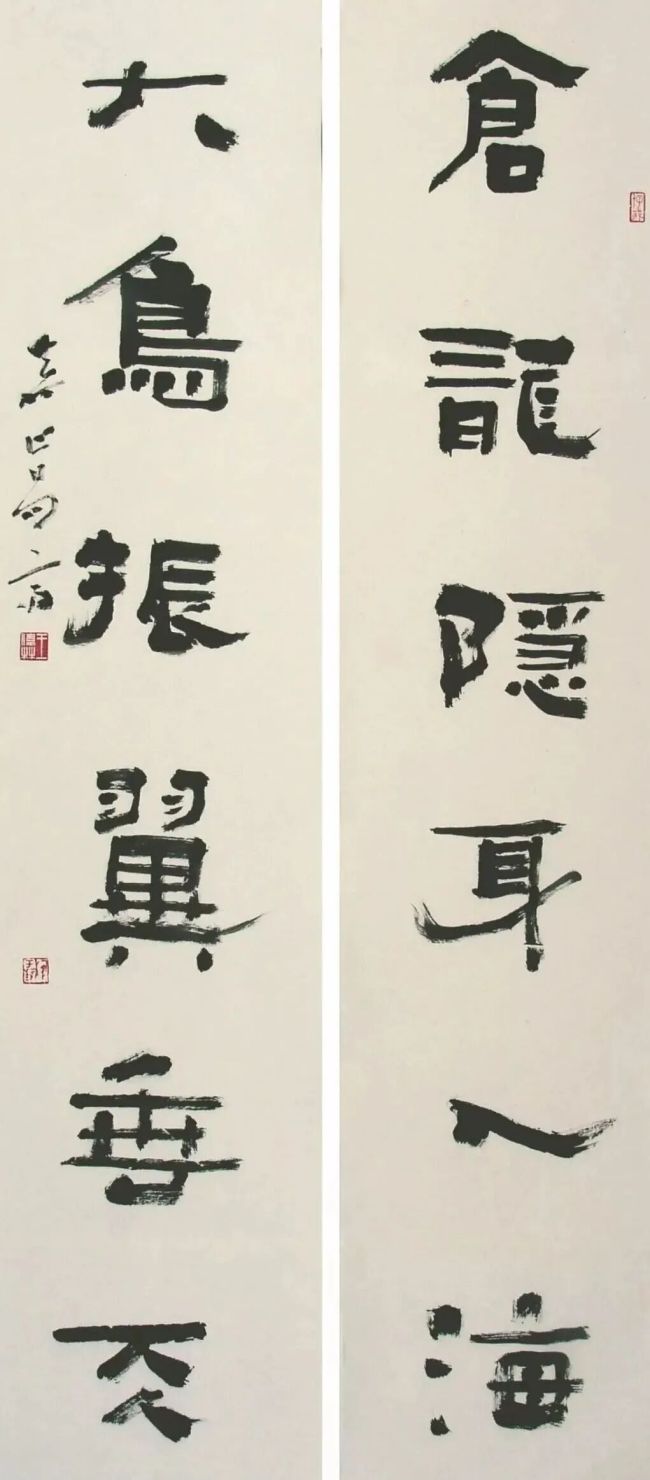 倉龍隱耳入海
大鳥振翼垂天